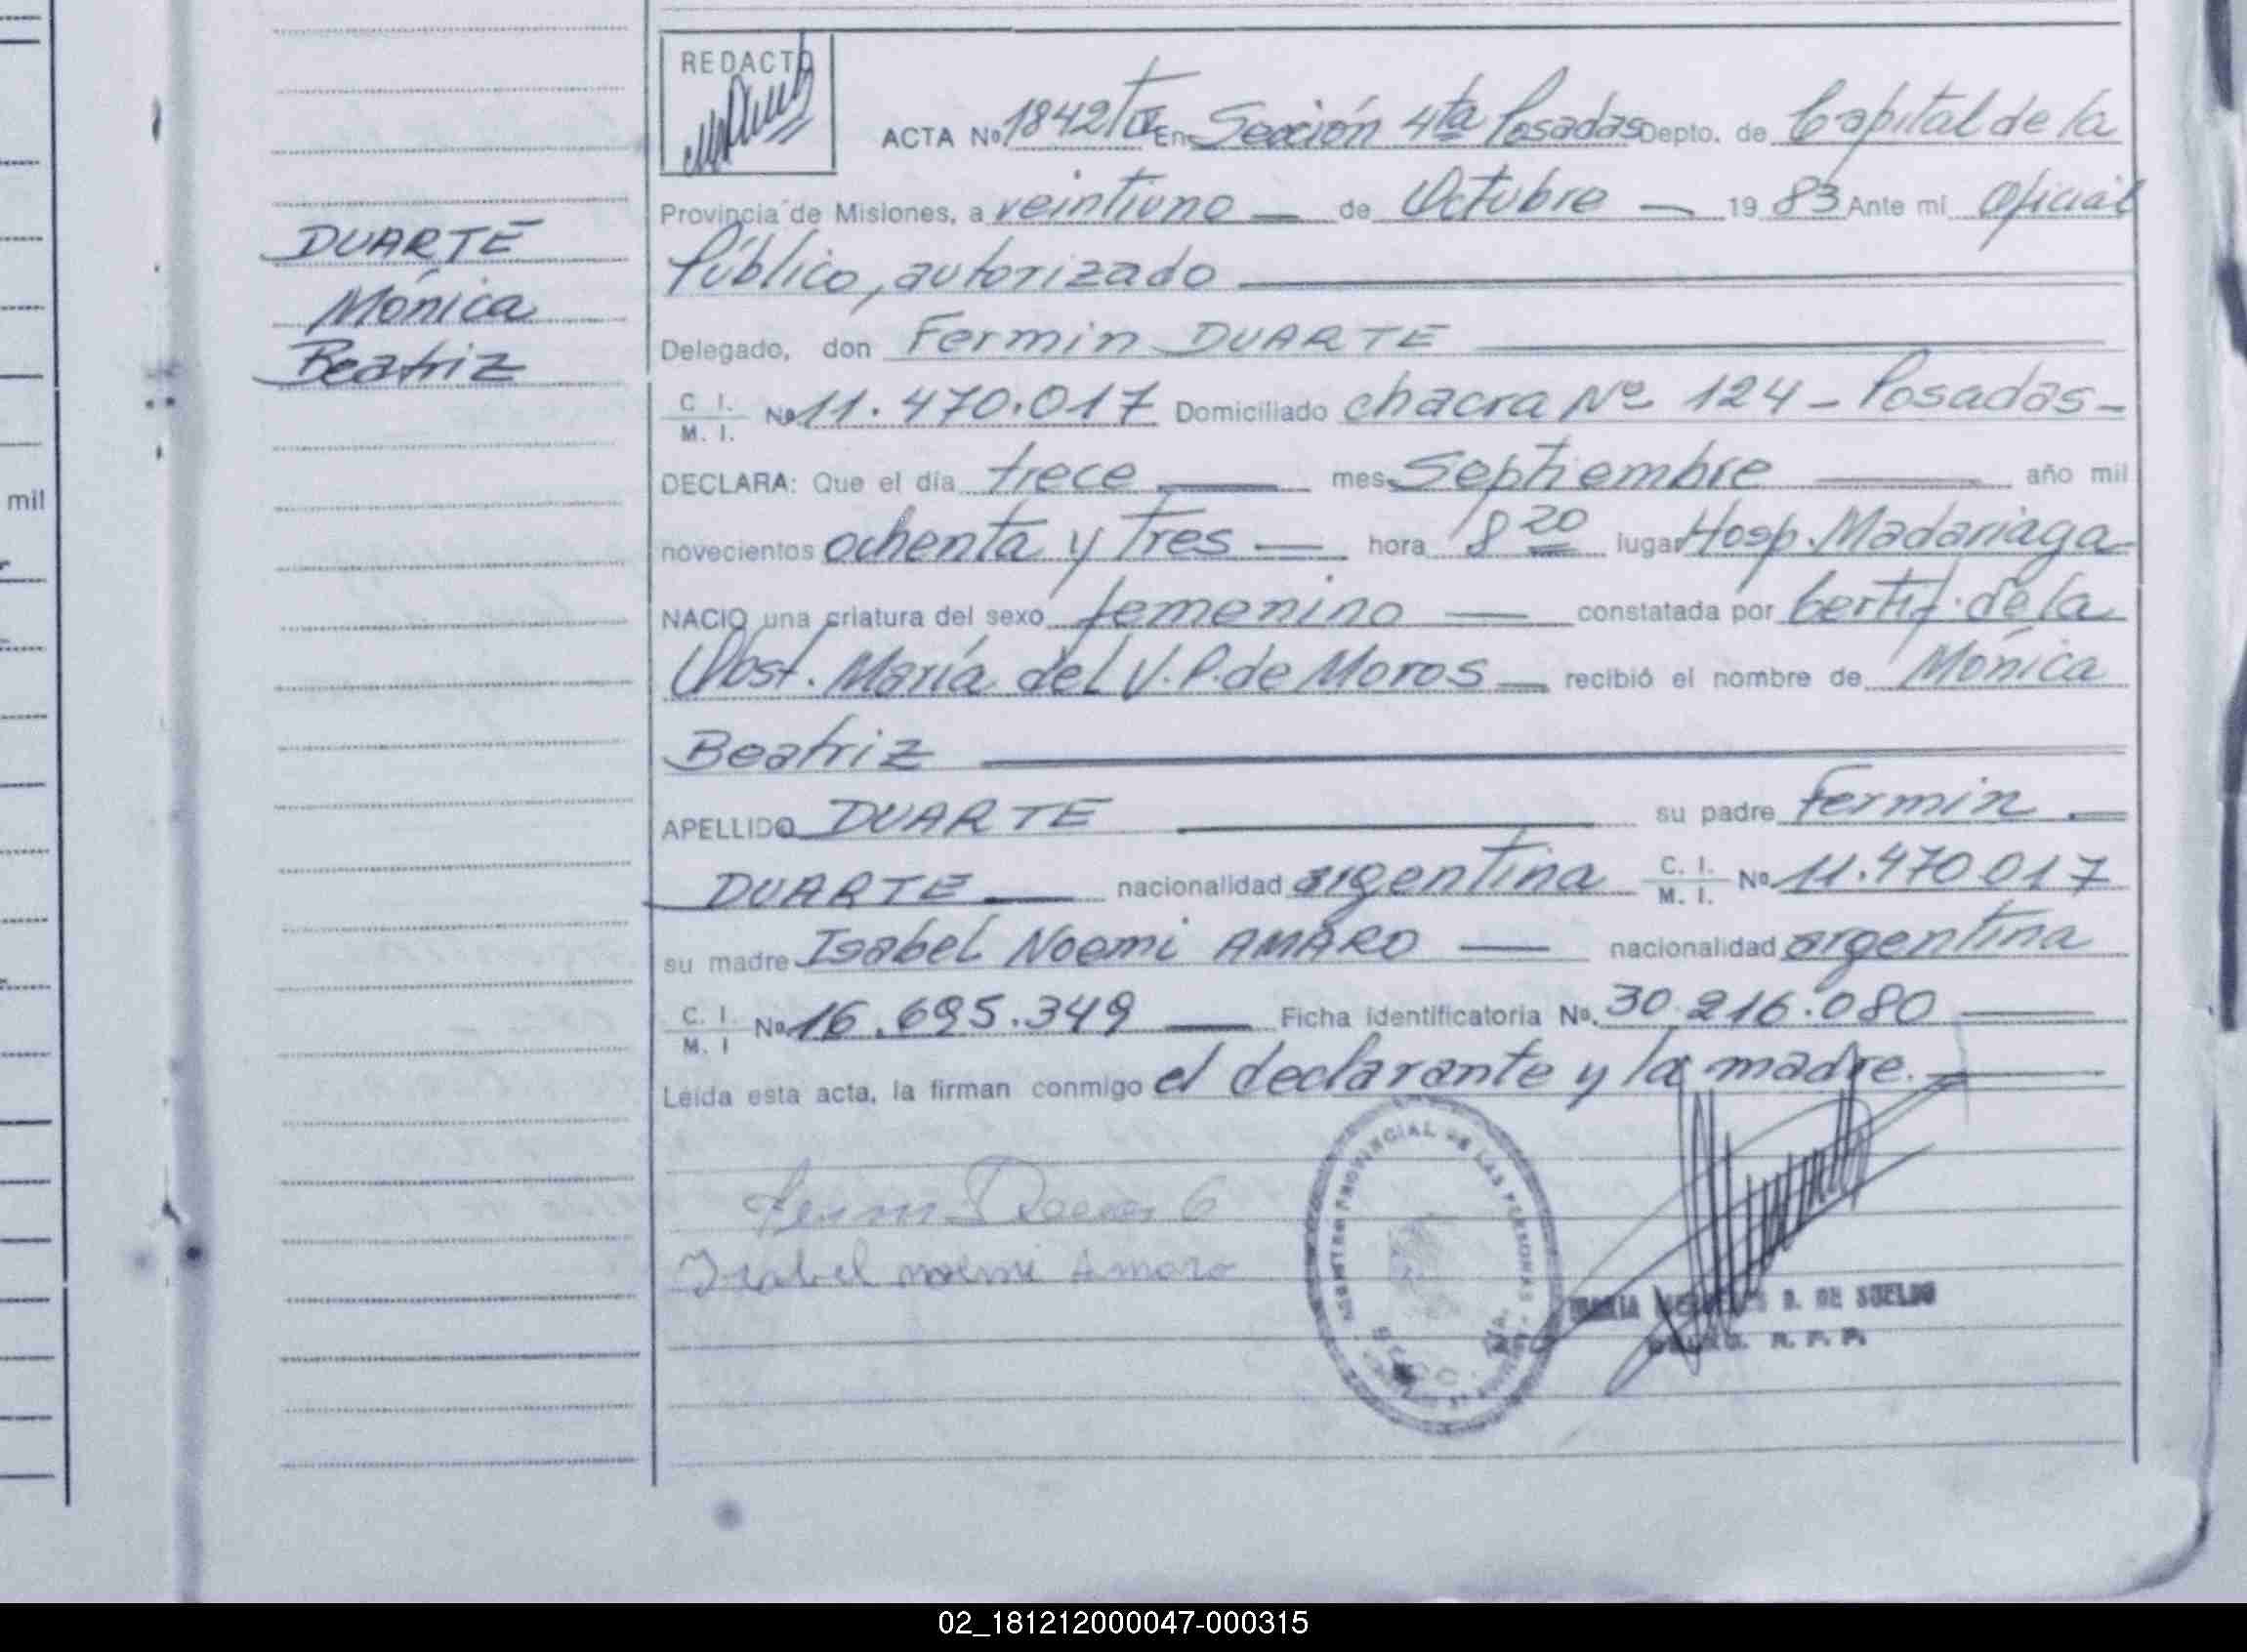 mil
DUARTE
Mónica
Beatriz
REDACTO
ACTA Nº 1842/T En Sección 4ta Posadas Depto. de Capital de la
Provincia de Misiones, a veintiuno — de Octubre — 19 83 Ante mi Oficial
Público, autorizado
Delegado, don Fermin DUARTE
C. I. / M. I. Nº 11.470.017 Domiciliado chacra Nº 124 - Posadas -
DECLARA: Que el día trece — mes Septiembre — año mil
novecientos ochenta y tres — hora 8 20 lugar Hosp. Madariaga
NACIO una criatura del sexo femenino — constatada por Certif. de la
Obst. María del V. P. de Moros — recibió el nombre de Mónica
Beatriz
APELLIDO DUARTE — su padre Fermin —
DUARTE — nacionalidad argentina C. I. / M. I. Nº 11.470.017
su madre Isabel Noemi AMARO — nacionalidad argentina
C. I. / M. I Nº 16.695.349 — Ficha identificatoria Nº. 30.216.080 —
Leída esta acta, la firman conmigo el declarante y la madre. —
Isabel noemi Amaro
PROVINCIAL DE LAS PERSONAS
MARIA D. DE SUELDO
R. P. P.
02_181212000047-000315